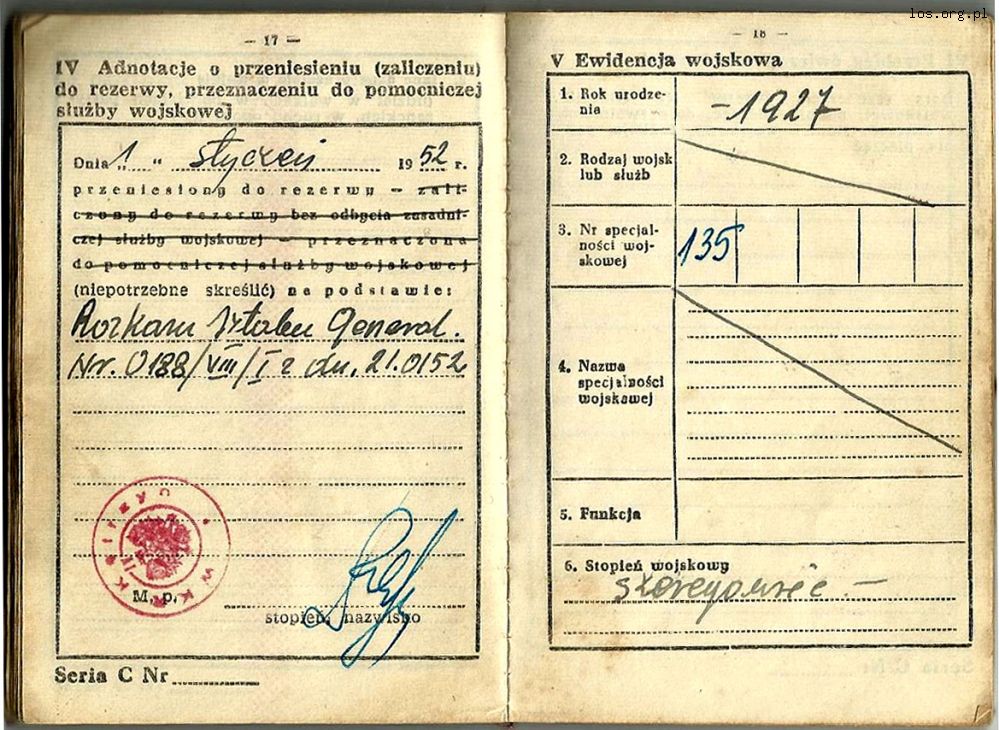 los.org.pl
— 17 —
IV Adnotacje o przeniesieniu (zaliczeniu)
do rezerwy, przeznaczeniu do pomocniczej
służby wojskowej
Dnia „1 “ styczeń 1952 r.
przeniesiony do rezerwy — zali-
czony do rezerwy bez odbycia zasadni-
czej służby wojskowej — przeznaczona
do pomocniczej służby wojskowej
(niepotrzebne skreślić) na podstawie:
Rozkazu Sztabu Generał.
Nr. 0188/VIII/I z dn. 21.0152
M. p.
stopień, nazwisko
Seria C Nr
— 18 —
V Ewidencja wojskowa
1. Rok urodze-
nia
– 1927
2. Rodzaj wojsk
lub służb
3. Nr specjal-
ności woj-
skowej
135
4. Nazwa
specjalności
wojskowej
5. Funkcja
6. Stopień wojskowy
szeregowiec –